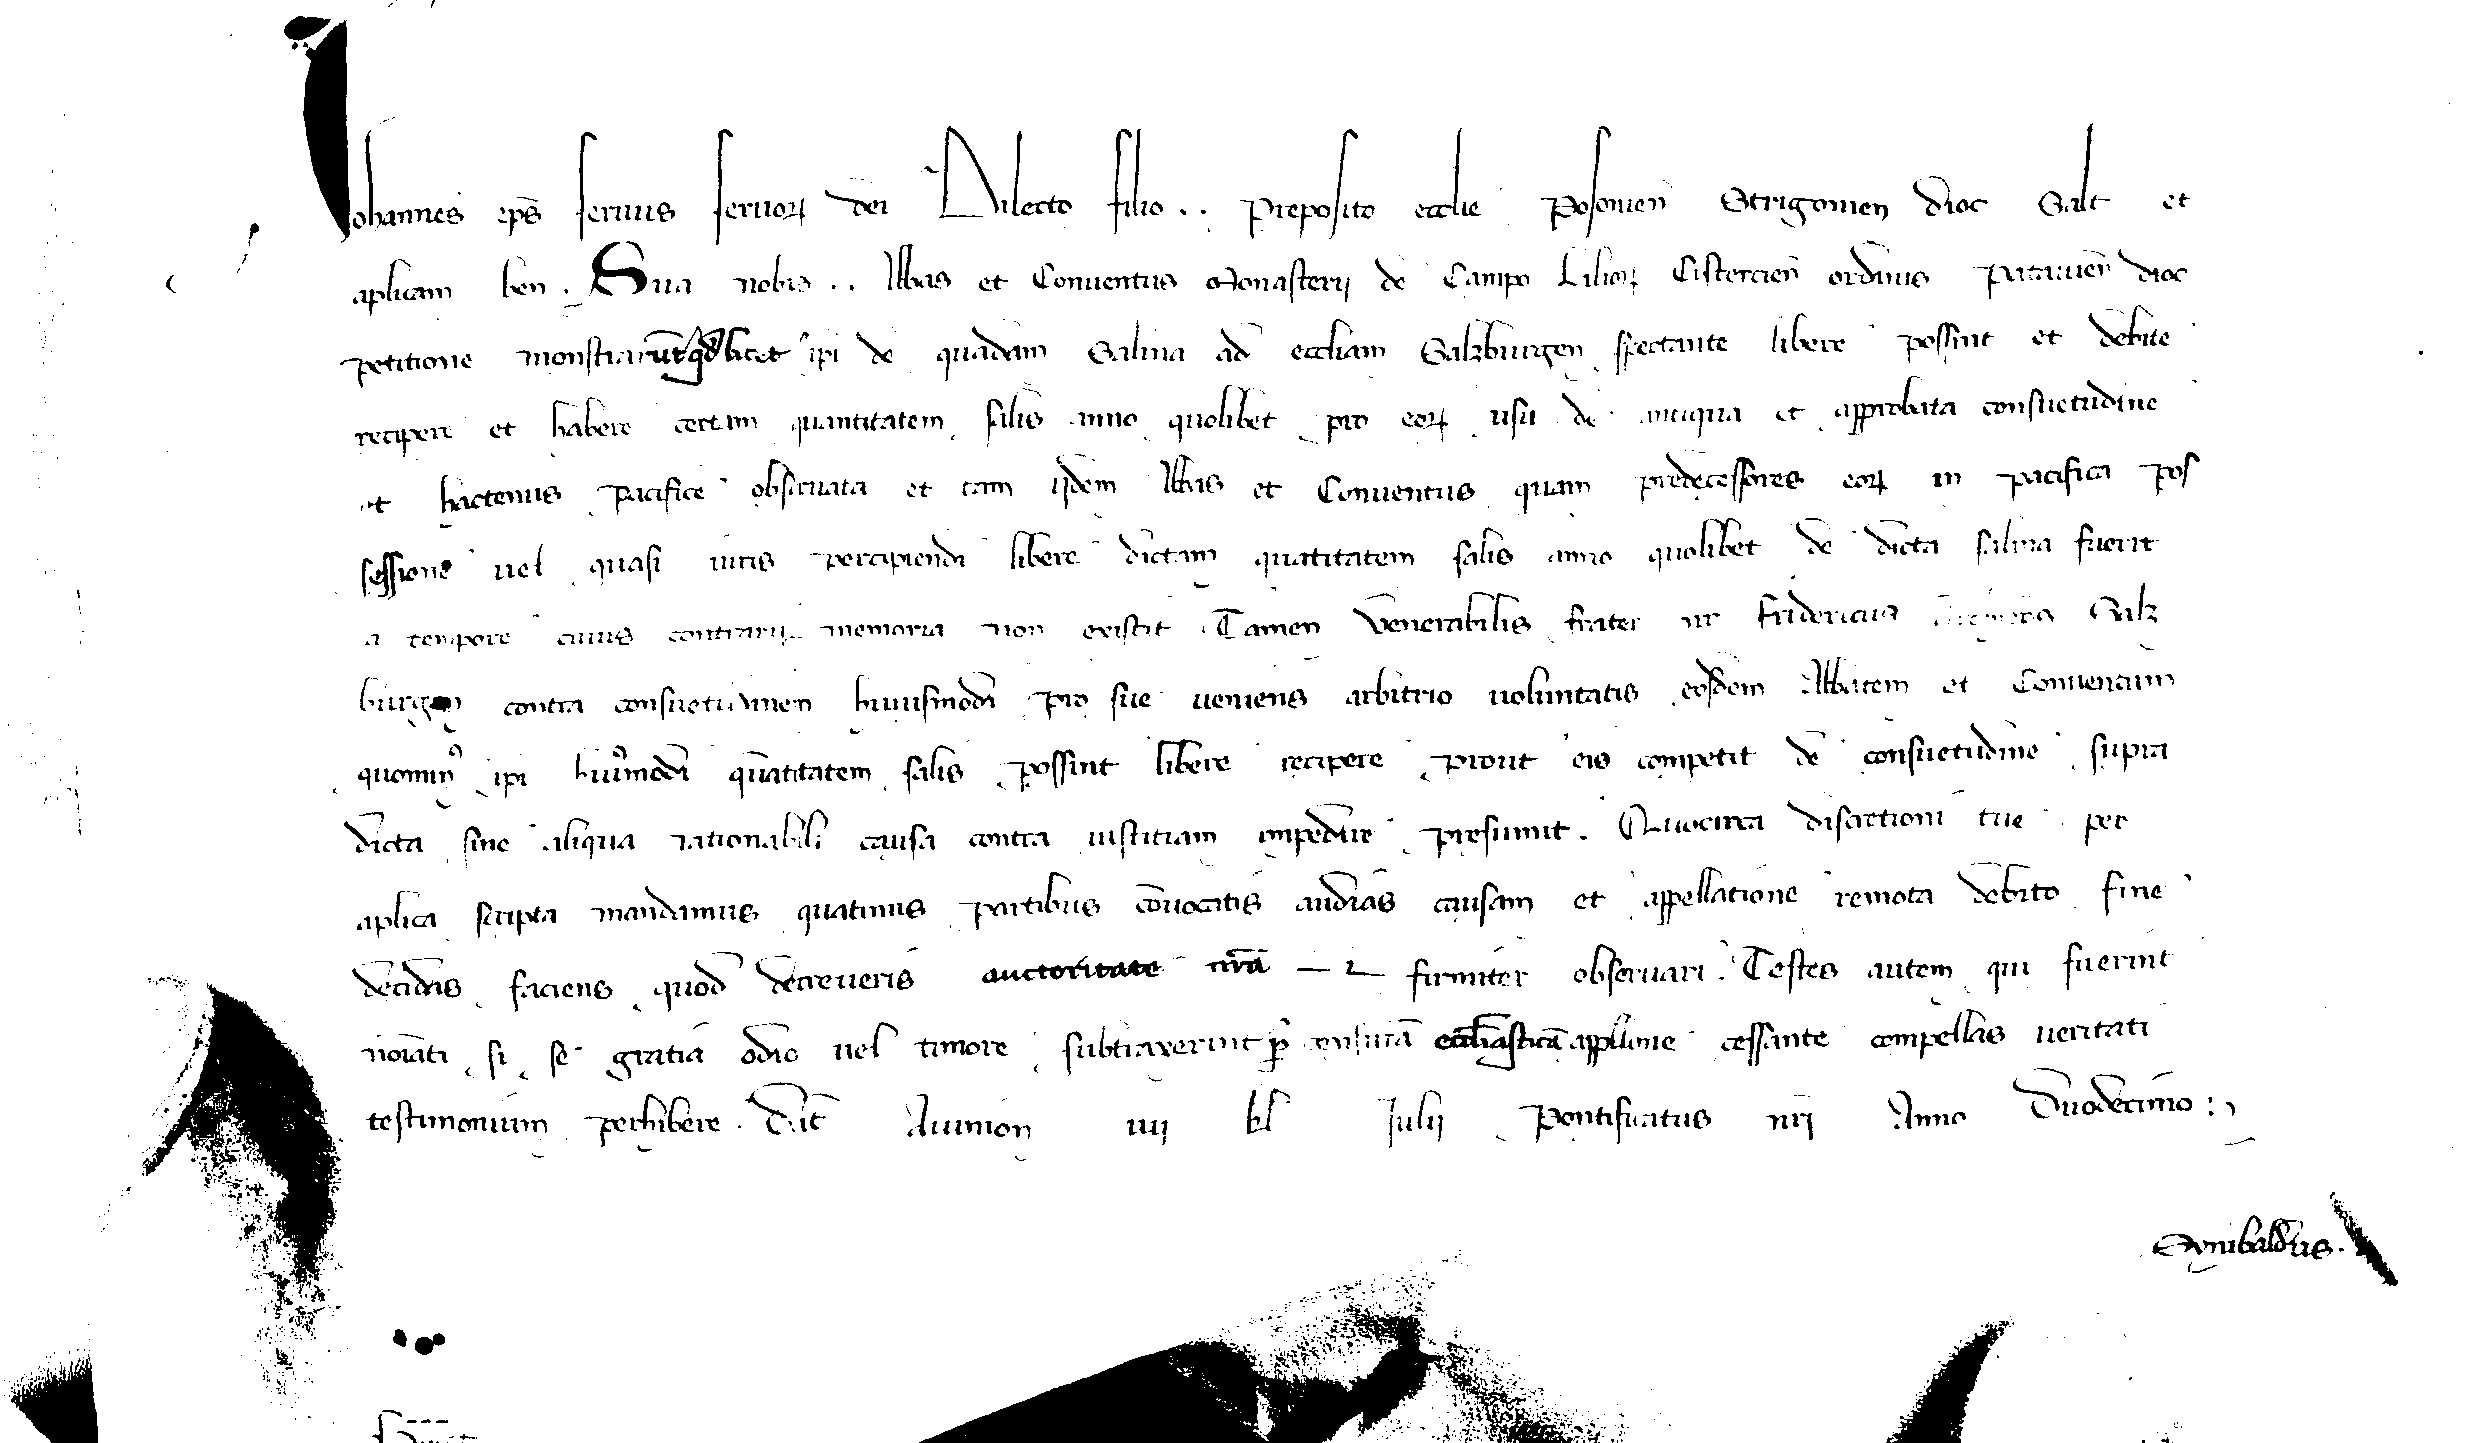 Johannes eps seruus seruoꝝ dei Dilecto filio . . Preposito ecclie Posonien Strigonien dioc Salt et
aplicam ben . Sua nobis . . Abbas et Conuentus Monasterij de Campo Lilioꝝ Cistercien ordinis Patauien dioc
petitione monstrarunt qd licet ipi de quadam Salina ad eccliam Salzburgen spectante libere possint et debite
recipere et habere certam quantitatem salis anno quolibet pro eoꝝ usu de antiqua et approbata consuetudine
et hactenus pacifice obseruata et tam ijdem Abbas et Conuentus quam predecessores eoꝝ in pacifica pos
sessione uel quasi iuris percipiendi libere dictam quatitatem salis anno quolibet de dicta salina fuerit
a tempore cuius contrarij memoria non existit Tamen Venerabilis frater nr Fridericus Salz
burgen contra consuetudinem huiusmodi pro sue ueniens arbitrio uoluntatis eosdem Abbatem et Conuentum
quominꝰ ipi huiꝰmodi quatitatem salis possint libere recipere prout eis competit de consuetudine supra
dicta sine aliqua rationabili causa contra iustitiam impedire presumit . Quocirca discretioni tue per
aplica scripta mandamus quatinus partibus conuocatis audias causam et appellatione remota debito fine
decidas faciens quod decreueris auctoritate nra firmiter obseruari . Testes autem qui fuerint
noiati si se gratia odio uel timore subtraxerint ꝑ censura ecclesiastica appllone cessante compellas ueritati
testimonium perhibere . Dat Auinion iiij kl Julij Pontificatus nri Anno Duodecimo :
Synibaldus .